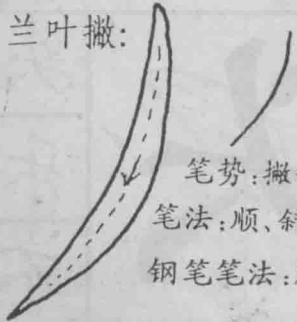 兰叶撇:
笔势:撇
笔法:顺、斜
钢笔笔法: